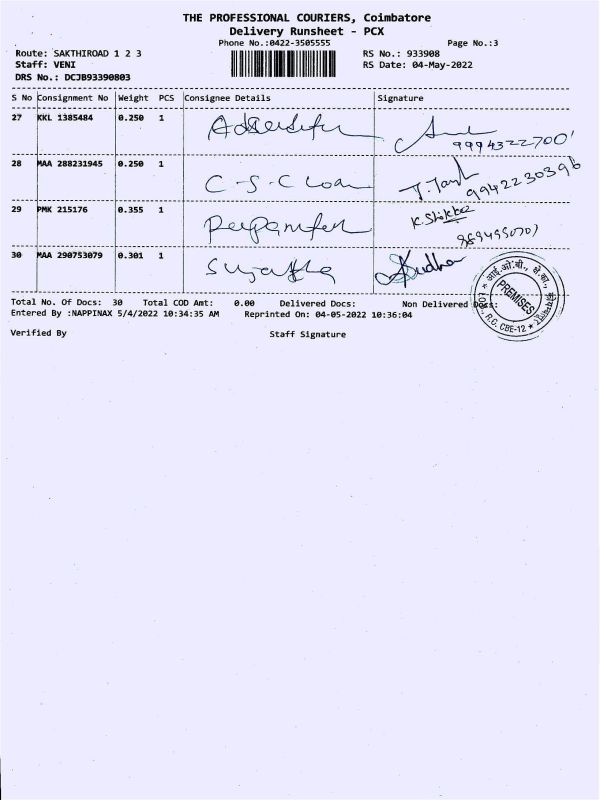 THE PROFESSIONAL COURIERS, Coimbatore
Delivery Runsheet - PCX
Phone No.:0422-3505555 Page No.:3
Route: SAKTHIROAD 1 2 3 RS No.: 933908
Staff: VENI RS Date: 04-May-2022
DRS No.: DCJB93390803
S No Consignment No Weight PCS Consignee Details Signature
27 KKL 1385484 0.250 1
9994322700
28 MAA 288231945 0.250 1
C-S-C Loan 9942230396
29 PMK 215176 0.355 1
30 MAA 290753079 0.301 1
Sujatha Sudha
Total No. Of Docs: 30 Total COD Amt: 0.00 Delivered Docs: Non Delivered Docs:
Entered By :NAPPINAX 5/4/2022 10:34:35 AM Reprinted On: 04-05-2022 10:36:04
Verified By Staff Signature
PREMISES
R.C. CBE-12